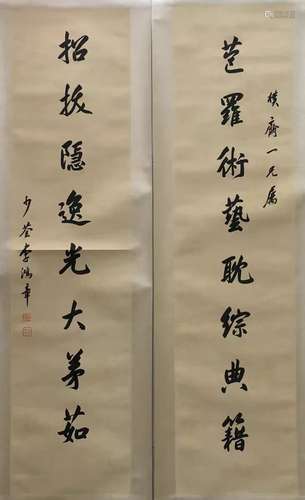 苞羅術藝耽綜典籍
樸齋一兄屬
招拔隱逸光大茅茹
少荃李鴻章